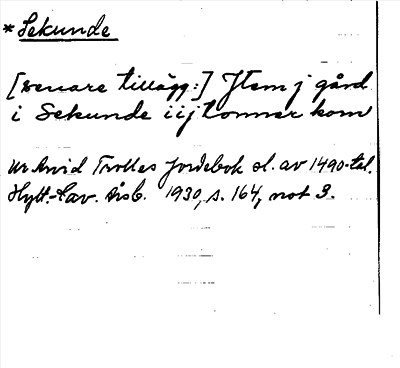 * Sekunde
[senare tillägg:] Jtem j gård
i Sekunde iij tonner korn
Ur Arvid Trolles Jordebok sl. av 1490-tal.
Hylt.-Cav. Årsb. 1930, s. 164, not 3.